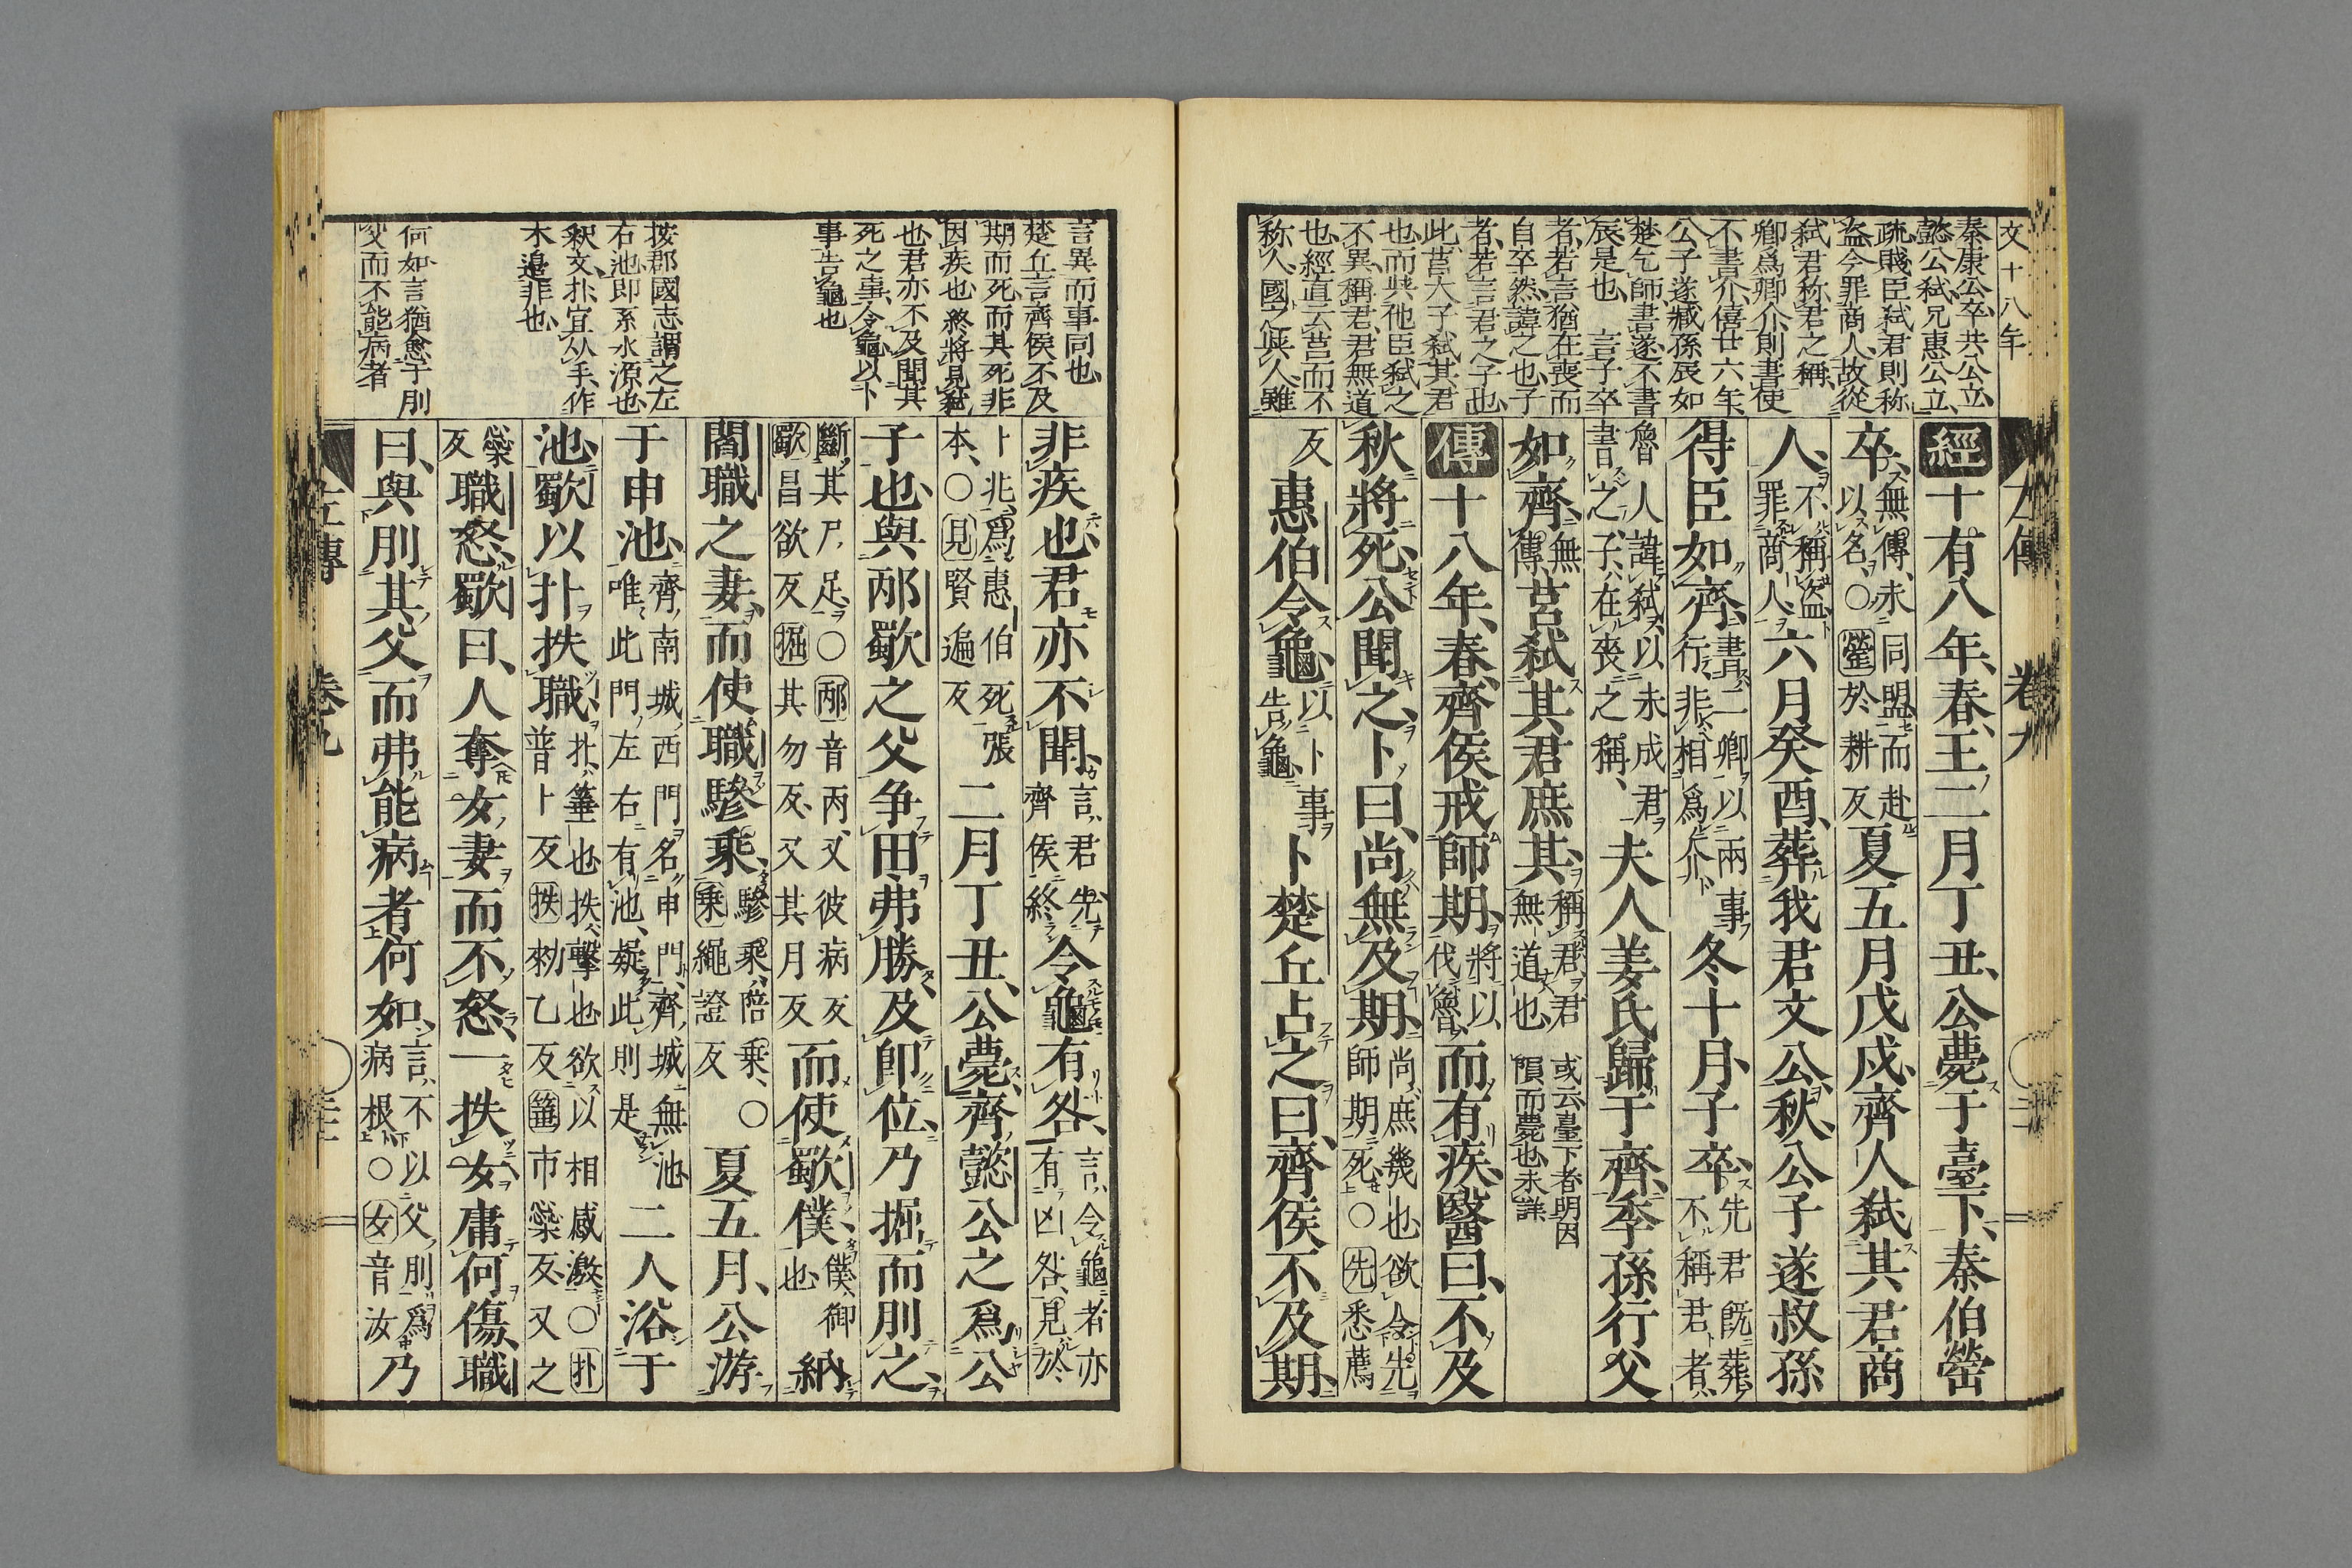 文十八年
秦康公卒、共公立、
懿公弑、兄惠公立、
疏賤臣弑君則称
盗、今罪商人、故從
弑君称君之稱、
卿爲卿介、則書使
不書介、僖廿六年、
公子遂臧孫辰如
楚乞師、書遂不書
辰是也、 言子卒
者、若言猶在喪而
自卒然、諱之也、子
者、若言君之子也、
此莒大子弑其君
也、而與他臣弑之
不異、稱君、君無道
也、經直云莒而不
称人、國之與人、雖
左傳 卷九
經十有八年、春、王二月丁丑、公薨于臺下、秦伯罃
卒、無傳、未同盟而赴以名、○罃於耕反夏五月戊戌、齊人弑其君商
人、不稱盗、罪商人六月癸酉、葬我君文公、秋、公子遂叔孫
得臣如齊、書二卿、以兩事行、非相爲介冬十月、子卒、先君既葬、不稱君者、
魯人諱弑、以未成君書之、子、在喪之稱、夫人姜氏歸于齊、季孫行父
如齊、無傳、莒弑其君庶其、稱君、君無道也、或云臺下者、明因隕而薨也、未詳
傳十八年、春、齊侯戒師期、將以伐魯而有疾、醫曰、不及
秋將死、公聞之、卜曰、尚無及期、尚、庶幾也、欲令先師期死、○先悉薦
反惠伯令龜、以卜事告龜、卜楚丘占之曰、齊侯不及期、
言異而事同也、
楚丘言齊侯不及
期而死、而其死非
因疾也、終將見弑
也、君亦不及聞其
死之事、令龜以卜
事告龜也
按郡國志謂之左
右池、即系水源也、
釈文、扑、宜从手、作
木邉非也、
何如、言猶愈于刖
父而不能病者
非疾也、君亦不聞、言、君先齊侯終令龜有咎、言、令龜者亦有凶咎、見於
卜兆、爲惠伯死張本、○見賢遍反二月丁丑、公薨、齊懿公之爲公
子也、與邴歜之父爭田、弗勝、及即位、乃掘而刖之、
斷其尸足、○邴音丙、又彼病反歜昌欲反掘其勿反、又其月反而使歜僕、僕、御也納
閻職之妻、而使職驂乘、驂乘、陪乘、○乘繩證反夏五月、公游
于申池、齊南城西門名申門、齊城無池、唯此門左右有池、疑此則是二人浴于
池、歜以扑抶職、扑、箠也、抶、擊也、欲以相感激、○扑普卜反抶勑乙反箠市蘂反、又之
蘂反職怒、歜曰、人奪女妻而不怒、一抶女、庸何傷、職
曰、與刖其父而弗能病者何如、言、不以父刖爲病根、○女音汝乃
左傳 卷九